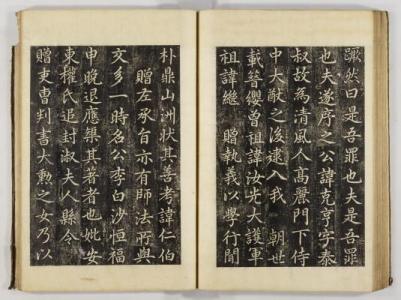 蹶然曰是吾罪也夫是吾罪
也夫遂序之公諱克亨字泰
叔故為清風人高麗門下侍
中大猷之後逮入我 朝世
載簪纓曾祖諱汝光大護軍
祖諱繼 贈執義以學行聞
朴鼎山洲狀其善考諱仁伯
贈左承旨亦有師法所與
交多一時名公李白沙恒福
申晚退應榘其著者也妣安
東權氏追封淑夫人縣令
贈吏曹判書大勳之女乃以